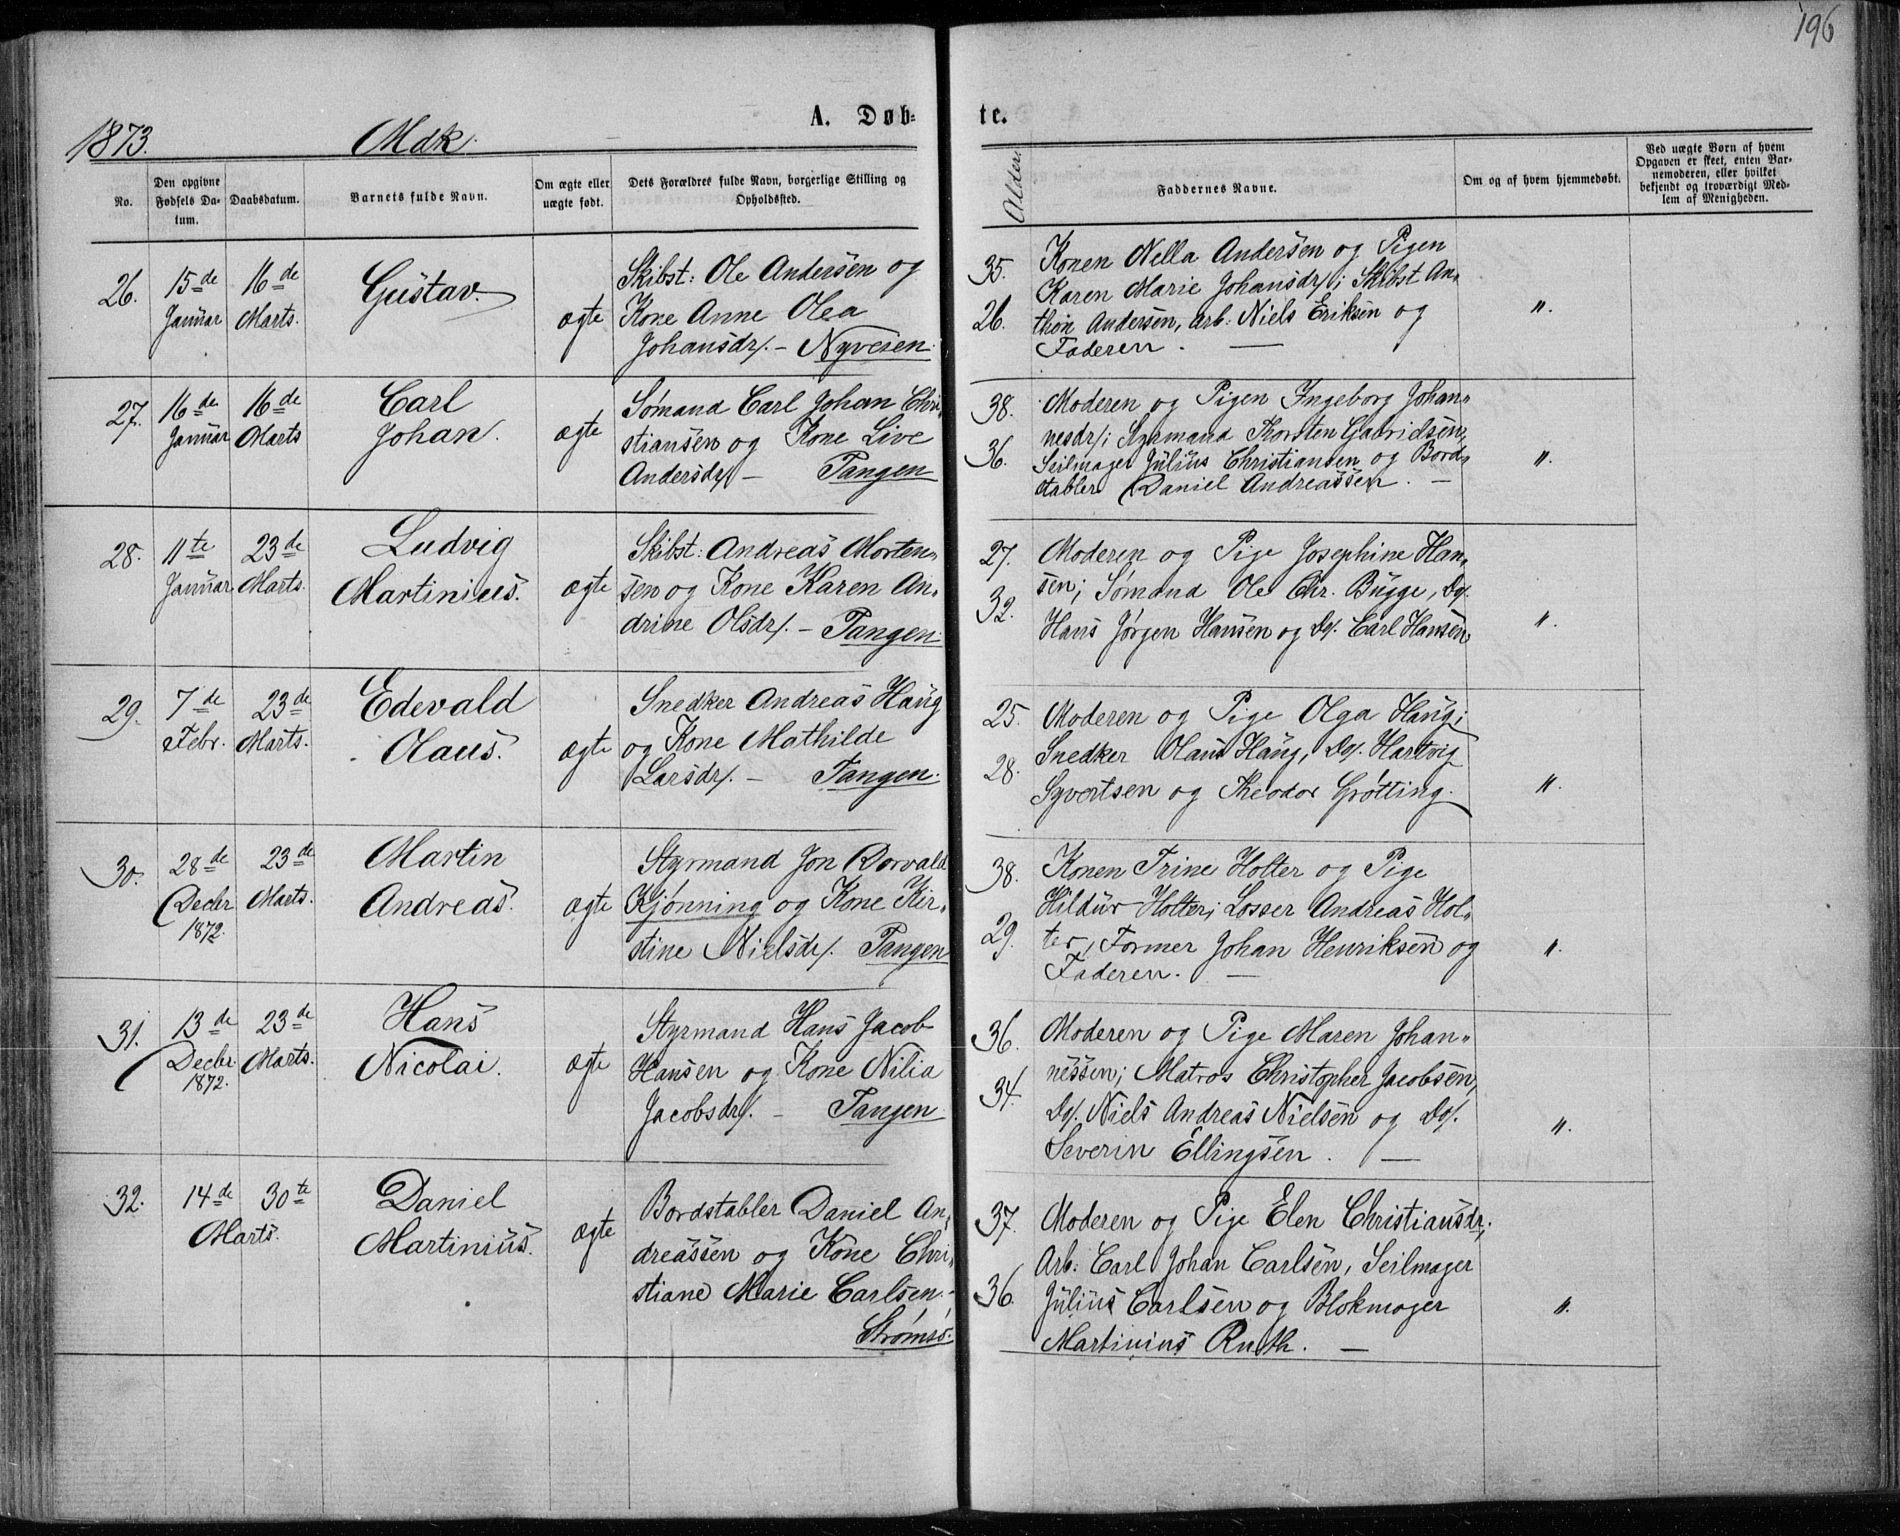 196
A. Døb-
te.
1873.
Mdk.
No.
Den opgivne Fødsels Da-
tum.
Daabsdatum.
Barnets fulde Navn.
Om ægte eller
uægte født.
Dets Forældres fulde Navn, borgerlige Stilling og
Opholdssted.
Alder.
Faddernes Navne.
Om og af hvem hjemmedøbt.
Ved uægte Børn af hvem
Opgaven er skeet, enten Bar-
nemoderen, eller hvilket
bekjendt og troværdigt Med-
lem af Menigheden.
26. 15de Januar 16de Marts. Gustav. ægte
Skibst: Ole Andersen og
Kone Anne Olea
Johansdr/. – Nyveien.
35.
26.
Konen Nella Andersen og Pigen
Karen Marie Johansdr/; Skibst An-
thon Andersen, Arb: Niels Eriksen og
Faderen. —
".
27. 16de Januar 16de Marts Carl
Johan. ægte
Sømand Carl Johan Chri-
stiansen og Kone Live
Andersdr/ – Tangen
38.
36.
Moderen og Pigen Ingeborg Johan-
nesdr/; Styrmand Thorsten Gabrielsen,
Seilmager Julius Christiansen og Bord-
stabler Daniel Andreassen. –
".
28. 11te Januar 23de Marts. Ludvig
Martinius. ægte
Skibst: Andreas Morten-
sen og Kone Karen An-
drine Olsdr/. – Tangen.
27.
32.
Moderen og Pige Josephine Han-
sen; Sømand Ole Chr. Bugge, Do/.
Hans Jørgen Hansen og Do/. Carl Hansen
".
29. 7de Febr. 23de Marts. Edevald
Olaus. ægte
Snedker Andreas Haug
og Kone Mathilde
Larsdr/. – Tangen.
25.
28.
Moderen og Pige Olga Haug;
Snedker Olaus Haug, Do/. Hartvig
Syvertsen og Theodor Grøtting.
".
30. 28de Decbr 1872. 23de Marts. Martin
Andreas. ægte
Styrmand Jon Dorvald
Kjønning og Kone Kir-
stine Nielsdr/. Tangen
38.
29.
Konen Trine Holter og Pige
Hildur Holter; Losser Andreas Hol-
ter, Former Johan Henriksen og
Faderen. —
".
31. 13de Decbr 1872. 23de Marts. Hans
Nicolai. ægte
Styrmand Hans Jacob
Hansen og Kone Nilia
Jacobsdr/. – Tangen
36.
34.
Moderen og Pige Maren Johan-
nessen; Matros Christopher Jacobsen,
Do/. Niels Andreas Nielsen og Do/.
Severin Ellingsen. —
".
32. 14de 30te
Marts. Daniel
Martinius. ægte
Bordstabler Daniel An-
dreassen og Kone Chri-
stiane Marie Carlsen. –
Strømsø.
37.
36.
Moderen og Pige Elen Christiansdr;
Arb: Carl Johan Carlsen, Seilmager
Julius Carlsen og Blokmager
Martinius Ruth. —
".